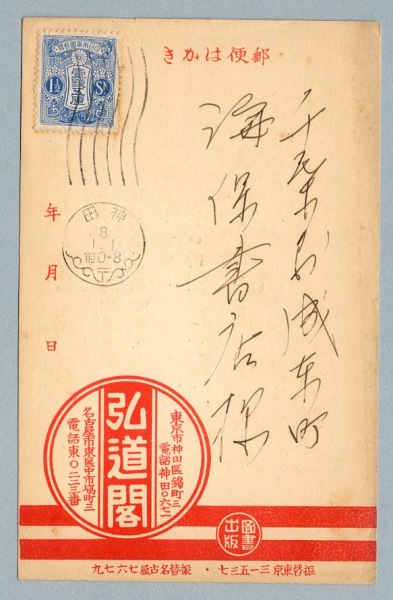 郵便はかき
大日本帝國郵便
壹錢五厘
1½ Sn
千葉縣成東町
海保書店様
神田
8
1.1
前0-8
年 月 日
弘道閣
東京市神田區錦町三
電話神田〇六七一
名古屋市東區中市場町三
電話東〇二二三番
圖書出版
振替東京三一五三七・振替名古屋七六七九